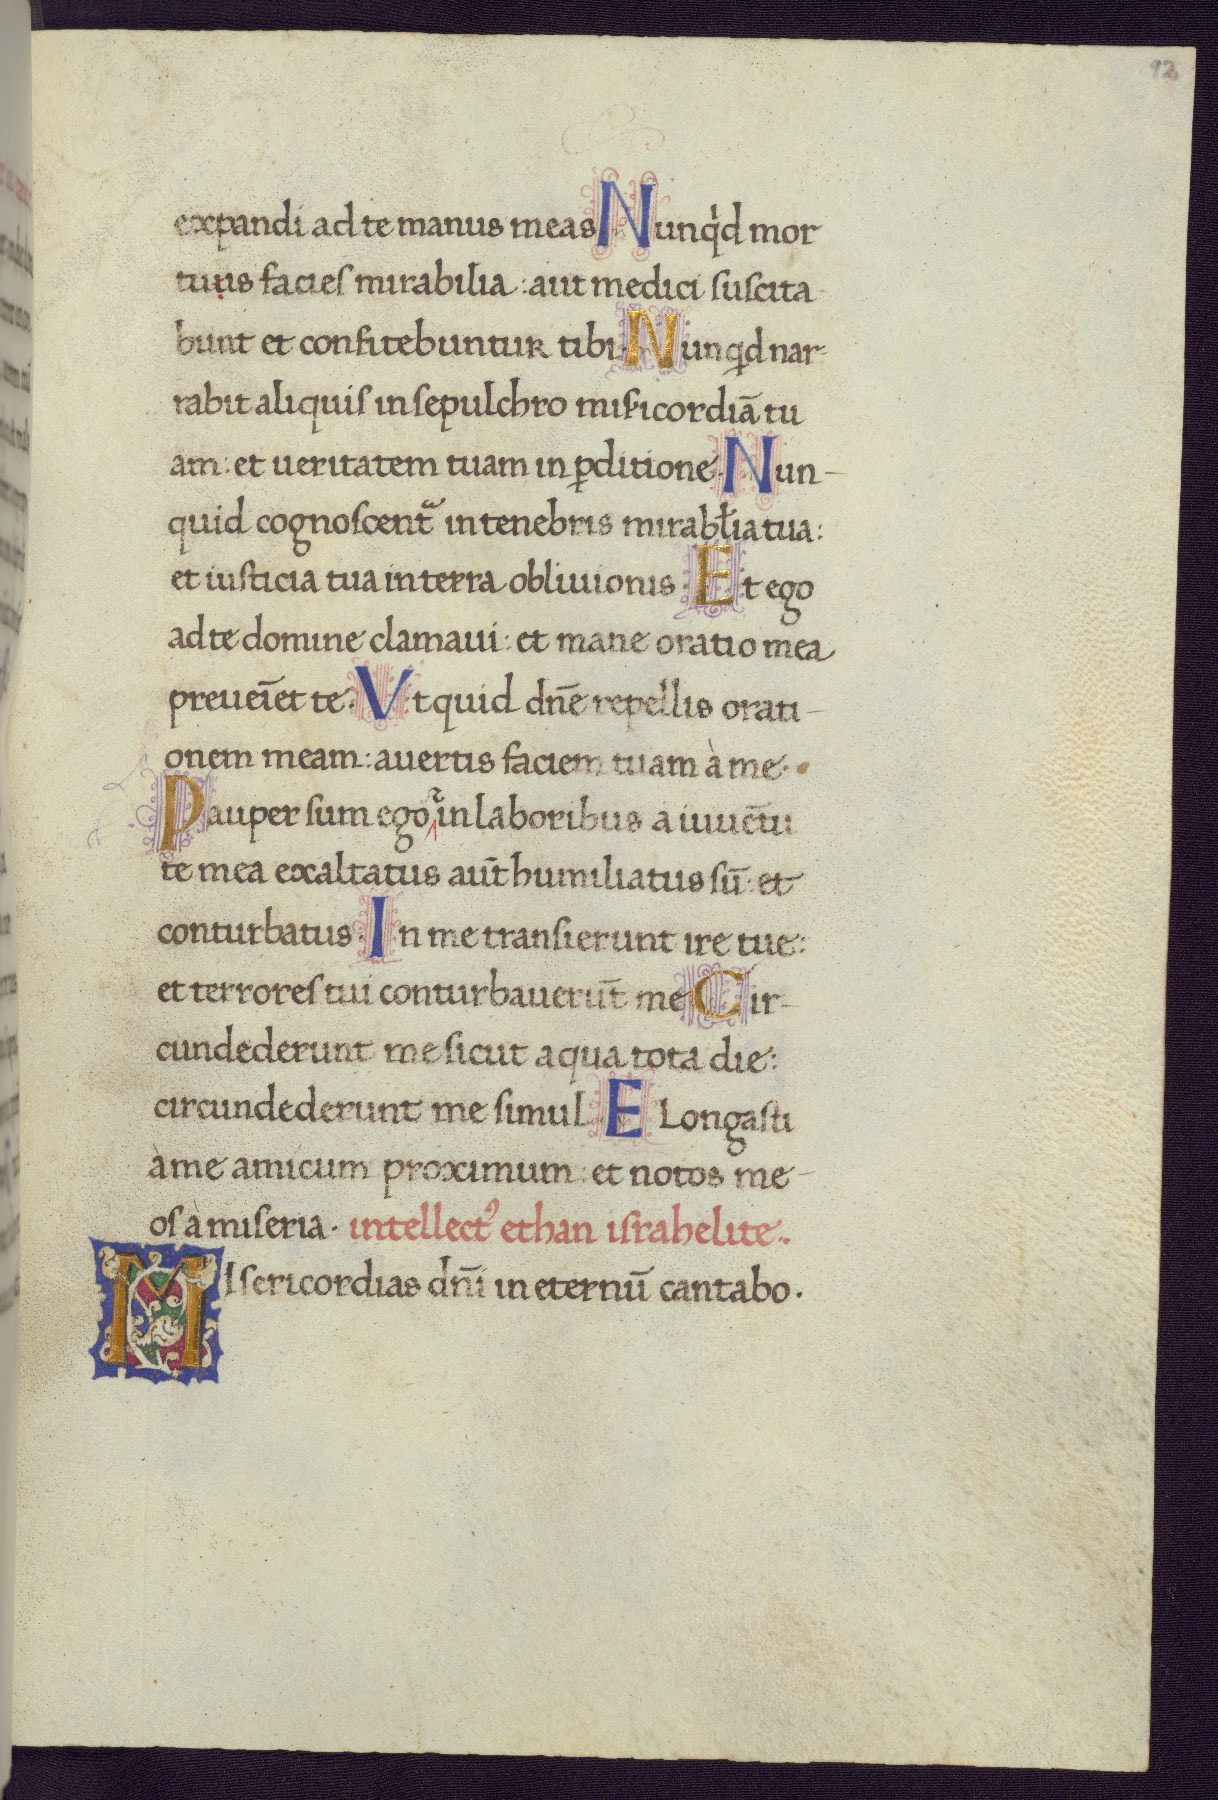 92
expandi ad te manus meas Nunqͥd mor
tuis facies mirabilia : aut medici suscita
bunt et confitebuntur tibi. Nunqͥd nar-
rabit aliquis in sepulchro misericordiā tu
am : et ueritatem tuam in ꝑditione. Nun-
quid cognoscent᷑ in tenebris mirabłia tua :
et iusticia tua in terra obliuionis Et ego
ad te domine clamaui : et mane oratio mea
preueīet te. Vt quid dn̄e repellis orati-
onem meam : auertis faciem tuam à me.
Pauper sum ego ⁊ in laboribus a iuuētu
te mea exaltatus aut̄ humiliatus sū : et
conturbatus. In me transierunt ire tue :
et terrores tui conturbauerūt me Cir-
cundederunt me sicut aqua tota die :
circundederunt me simul. Elongasti
à me amicum proximum : et notos me-
os à miseria. intellectꝰ ethan israhelite..
Misericordias dn̄i in eternū cantabo.